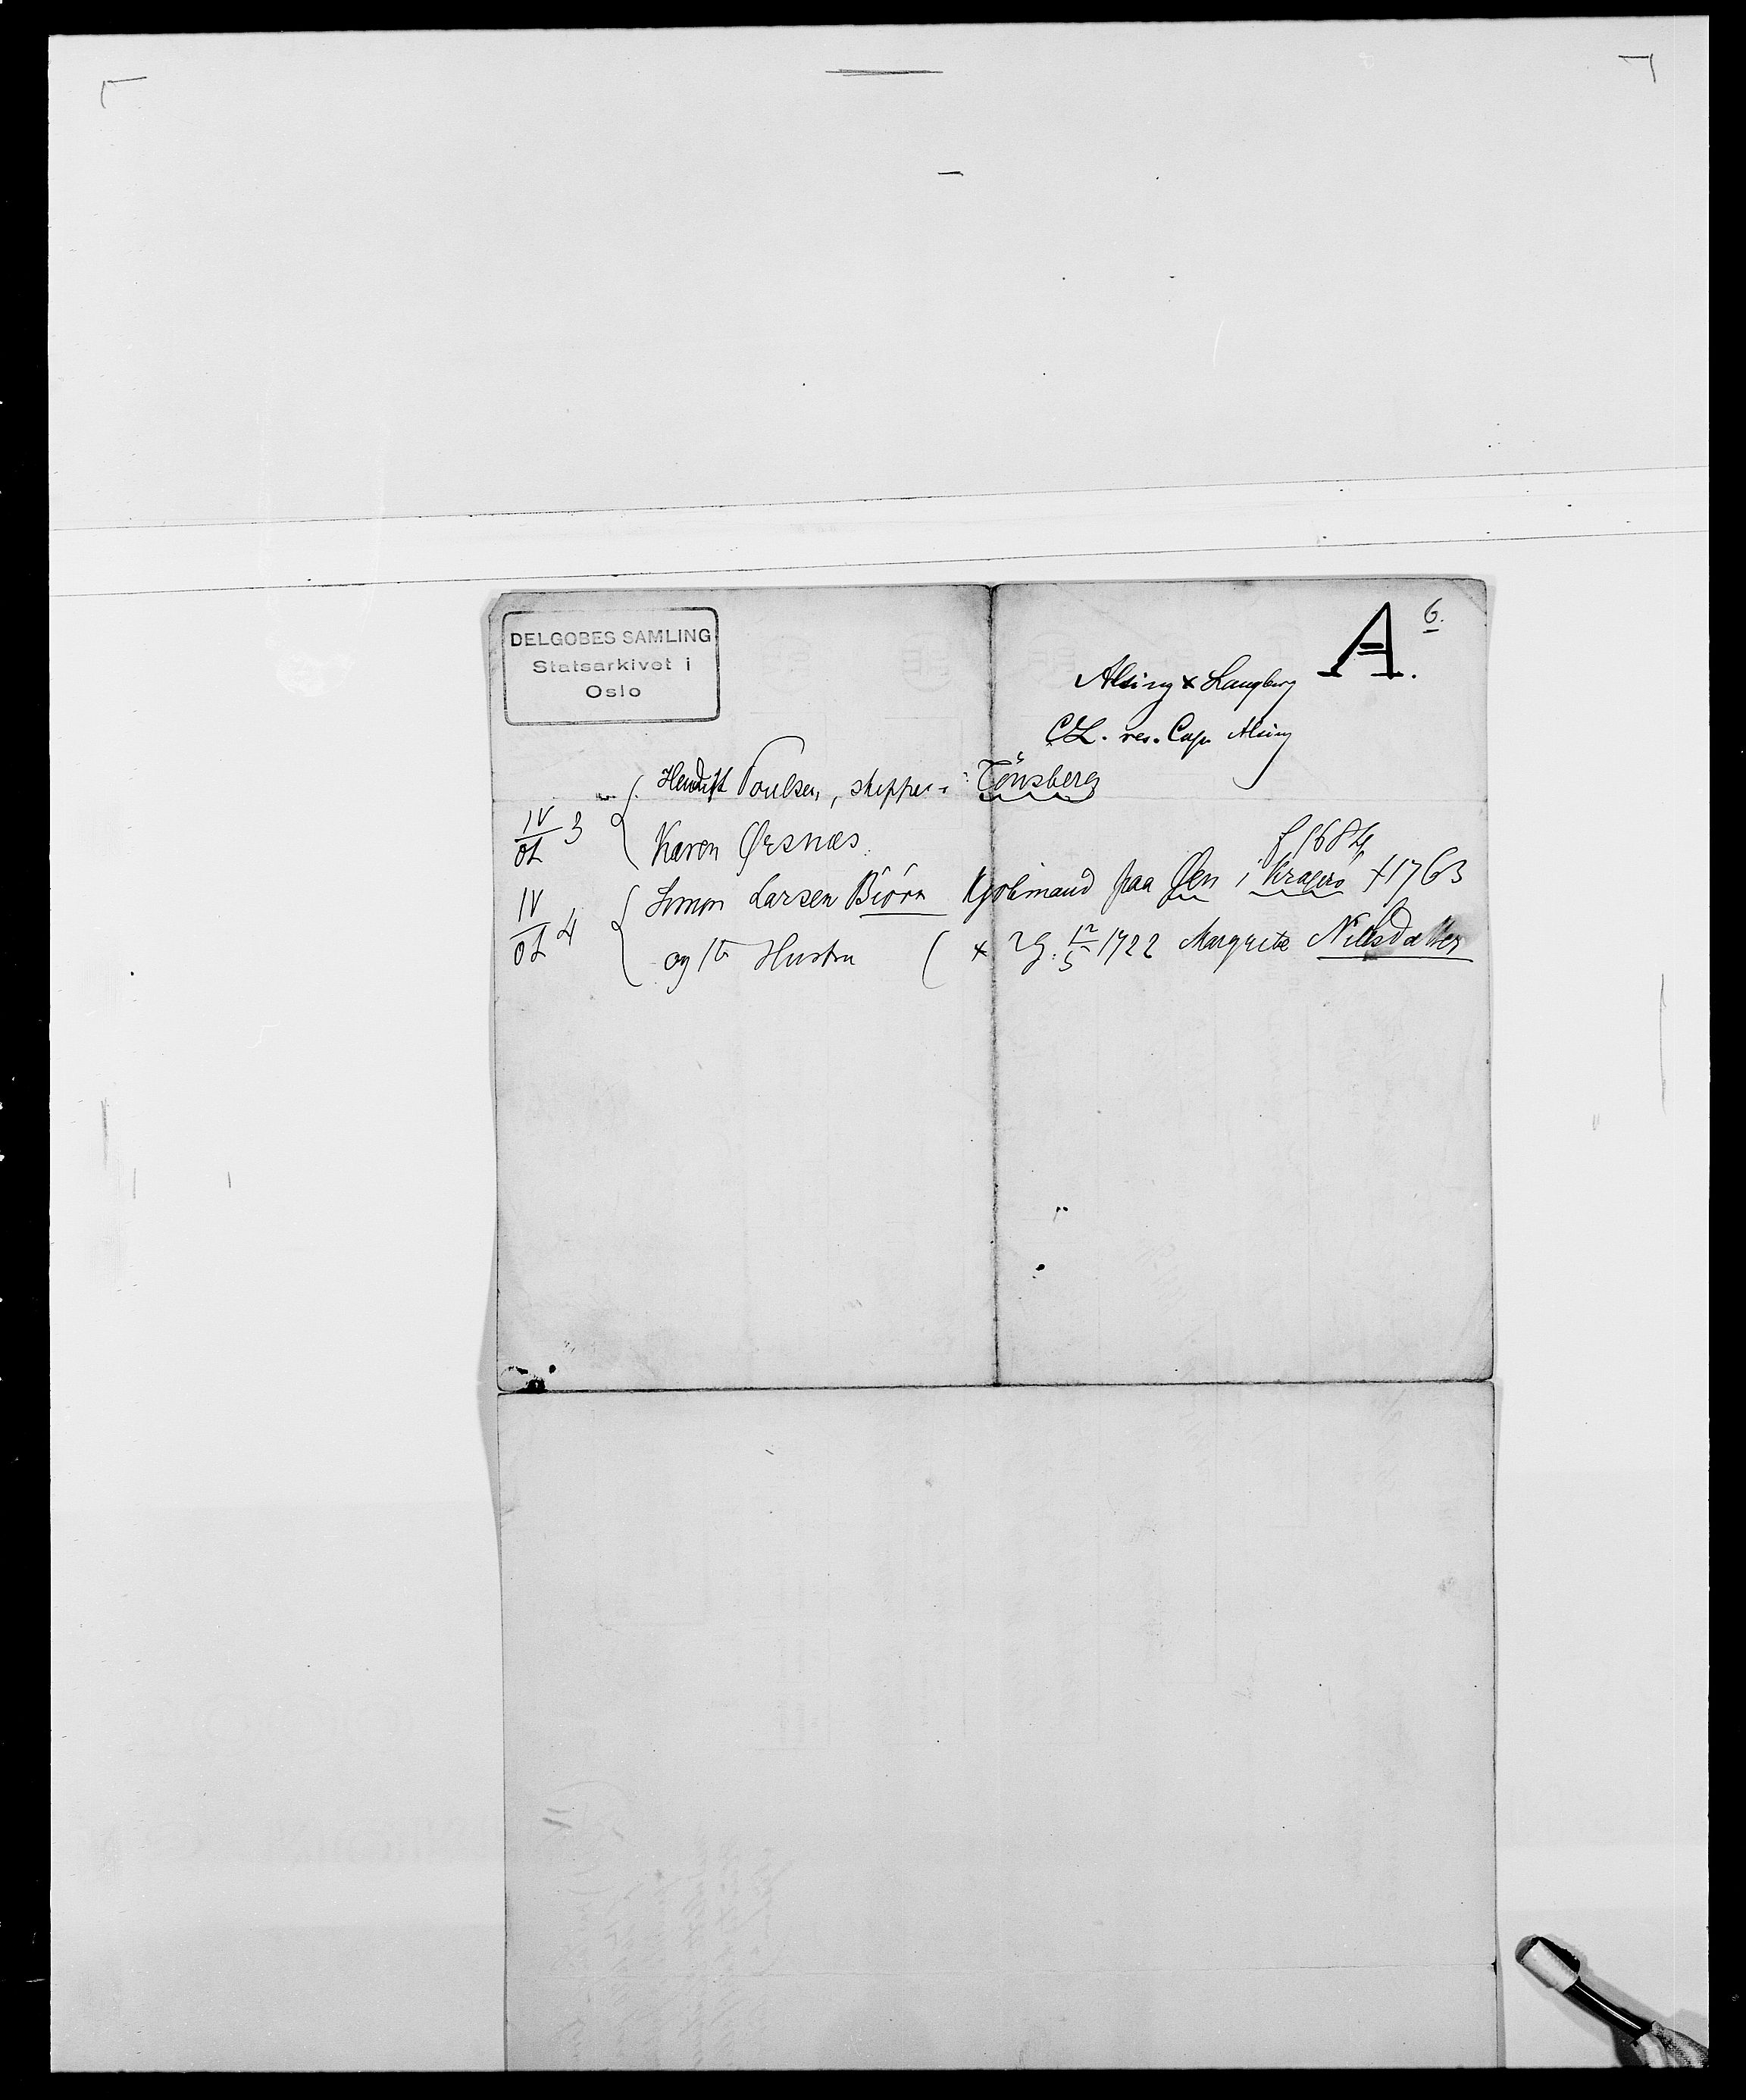 DELGOBES SAMLING
Statsarkivet i
Oslo
A. 6.
Alsing x Langberg
CL. res. Cap. Alsing
Hendrik Poulsen, skipper i Tönsberg
IV 3
Karen Ørsnæs.
f 1684
IV 4
Simon Larsen Biörn Kjöbmand paa Øen i Kragerö +1763
og 1te Hustru ( x 2 G. 12/5 1722 Margrete Nielsdatter